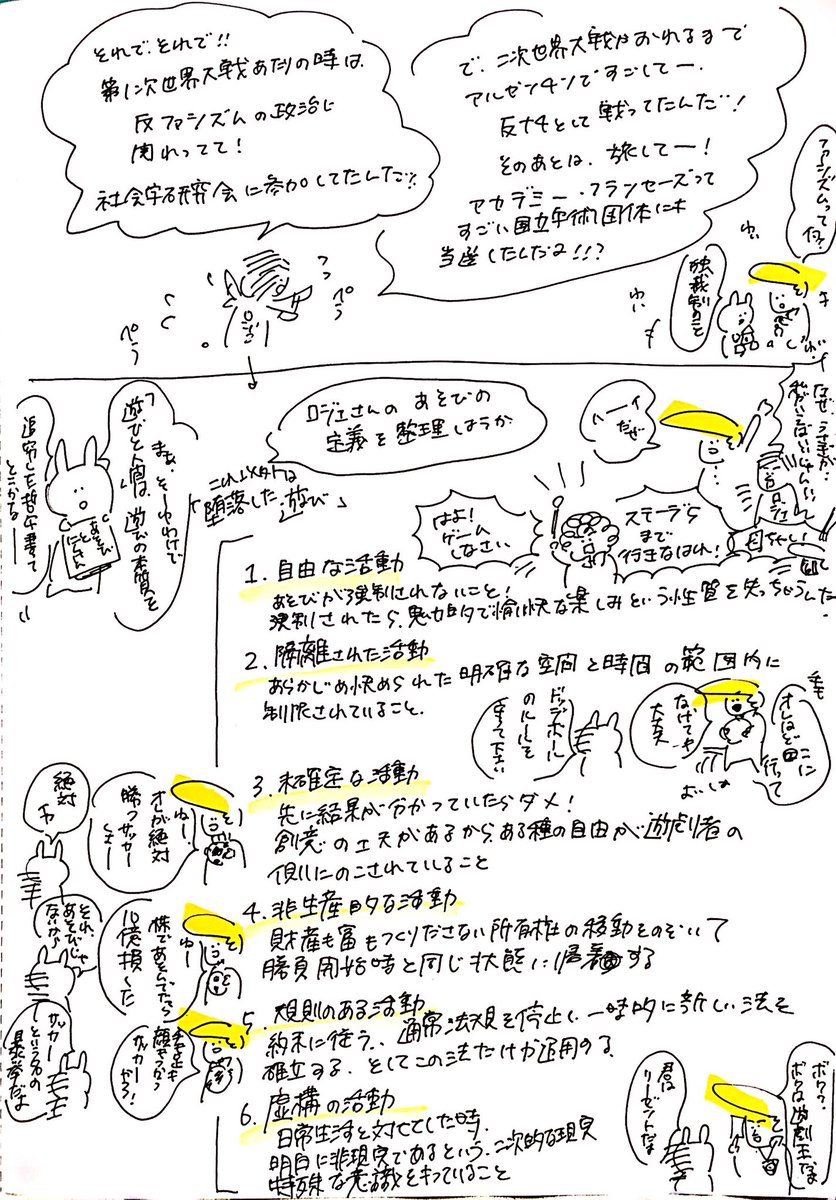 それで、それで!!
第1次世界大戦あたりの時は、
反ファシズムの政治に
関わってて!
社会学研究会に参加してたんだ!
で、二次世界大戦がおわるまで
アルゼンチンですごしてー、
反ナチとして戦ってたんだ!
そのあとは、旅してー!
アカデミー・フランセーズって
すごい国立学術団体にも
当選したんだ!!?
ファシズムって
何?
独裁制のこと
ロジェさんの あそびの
定義を整理しようか
ハーイ
だぜ
なぜ、うさぎが…
まぁ、そーゆわけで
「遊びと人間」は、遊びの本質を
追究した哲学書って
とこかなー
あそび
と
にんげん
これ以外は
「堕落した遊び」
はよ!
ゲーム
しなさい
ステージ5
まで
行きなはれ!
母ちゃん
1. 自由な活動
あそびが強制されないこと!
強制されたら、魅力的で愉快な楽しみという性質を失っちゃうんだ
2. 隔離された活動
あらかじめ決められた明確な空間と時間の範囲内に
制限されていること。
ドッジボール
のルールを
守って下さい
なげてや
オレはどこに
行って
3. 未確定な活動
先に結果が分かっていたらダメ!
創意の工夫があるから、ある種の自由が遊戯者の
側にのこされていること
絶対
ねー、
オレが絶対
勝つサッカー
しよー
4. 非生産的な活動
財産も富もつくりださない所有権の移動をのぞいて
勝負開始時と同じ状態に帰着する
それ、
あそびじゃ
ないから
ねー
株であそんでたら
10億損した
5. 規則のある活動
約束に従う、通常法規を停止し、一時的に新しい法を
確立する、そしてこの法だけが通用する
サッカー
という名の
暴挙だよ
手も足も
顔もつかう
サッカー
やろう!
6. 虚構の活動
日常生活と対比した時、
明白に非現実であるという、二次的な現実
特殊な意識をもっていること
君は
リーゼントだよ
ボク?、
ボクは遊戯王だよ